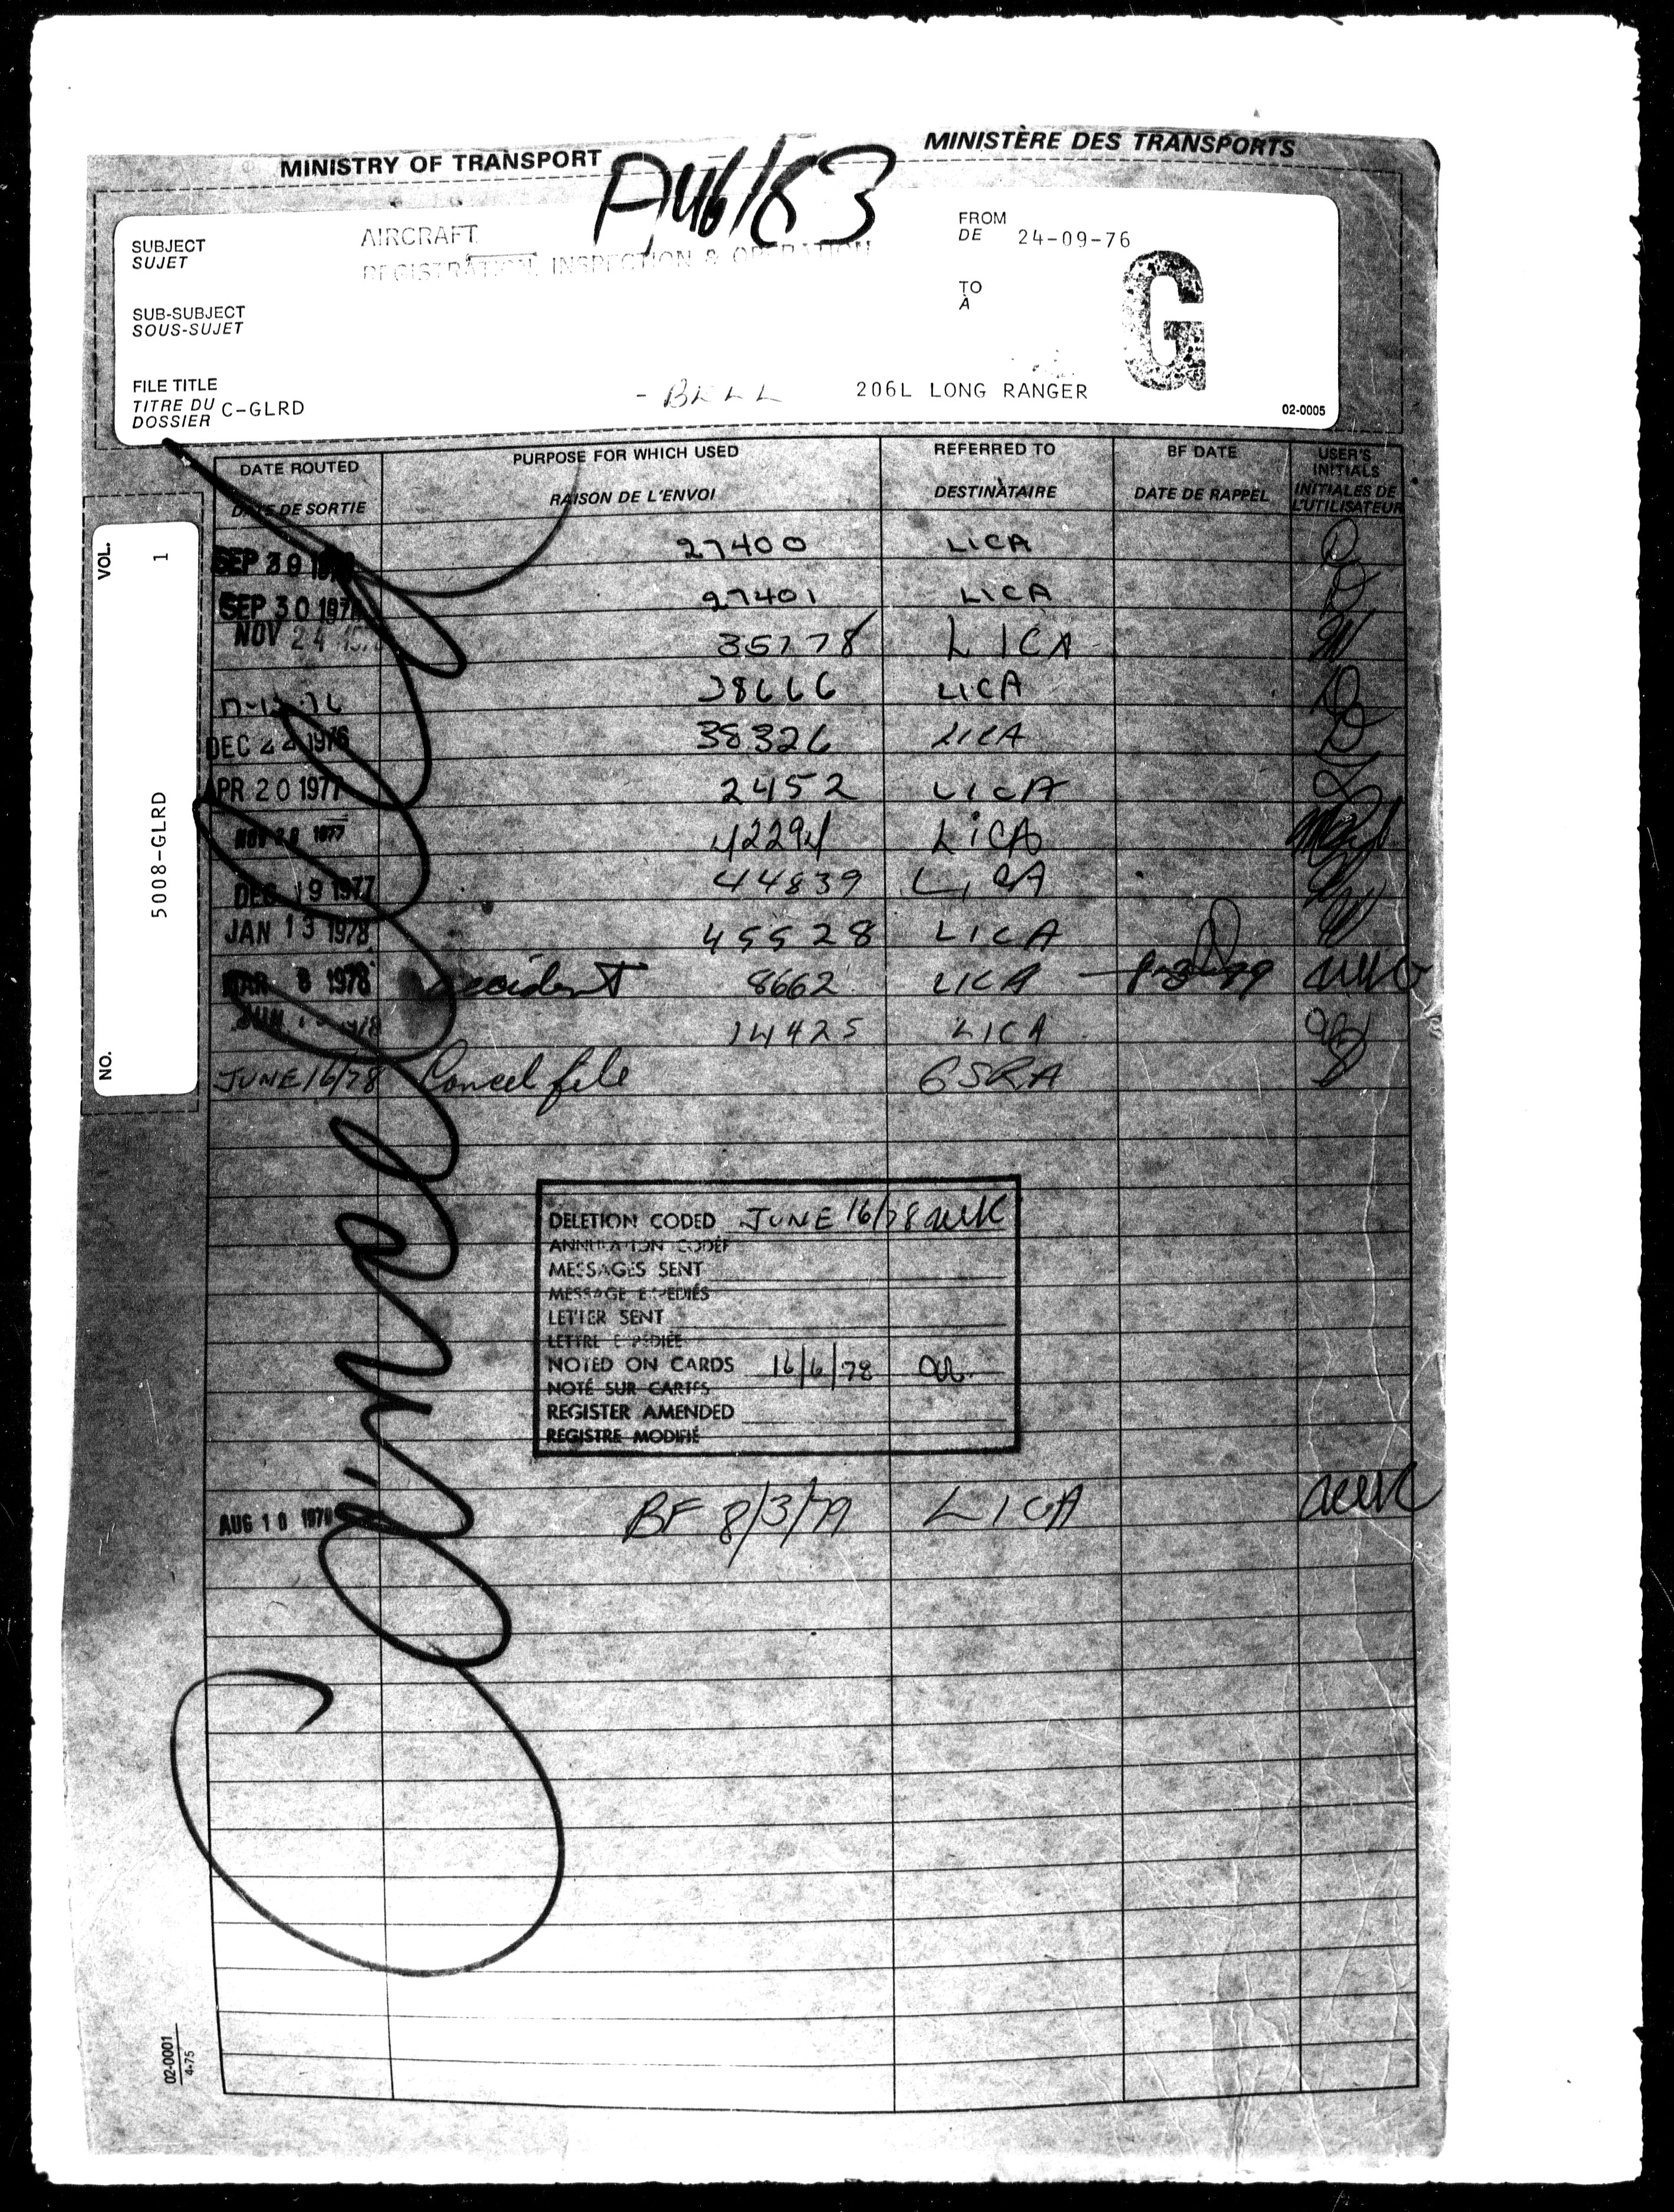 MINISTRY OF TRANSPORT
MINISTÈRE DES TRANSPORTS
SUBJECT
SUJET
AIRCRAFT
REGISTRATION, INSPECTION & OPERATION
FROM
DE 24-09-76
TO
À
G
SUB-SUBJECT
SOUS-SUJET
FILE TITLE
TITRE DU
DOSSIER C-GLRD - BELL 206L LONG RANGER
02-0005
DATE ROUTED
DATE DE SORTIE
PURPOSE FOR WHICH USED
RAISON DE L'ENVOI
REFERRED TO
DESTINATAIRE
BF DATE
DATE DE RAPPEL
USER'S INITIALS
INITIALES DE L'UTILISATEUR
VOL. 1
5008-GLRD
NO.
27400 LICA
SEP 30 1976 27401 LICA
NOV 24 35778 LICA
38666 LICA
DEC 1976 38326 LICA
APR 20 1977 2452 LICA
1977 42294 LICA
DEC 19 1977 44839 LICA
JAN 13 1978 45528 LICA
MAR 8 1978 Accident 8662 LICA
14425 LICA
JUNE 16/78 Cancel file GSRA
DELETION CODED JUNE 16/78
ANNULATION CODÉE
MESSAGES SENT
MESSAGE EXPÉDIÉS
LETTER SENT
LETTRE EXPÉDIÉE
NOTED ON CARDS 16/6/78
NOTÉ SUR CARTES
REGISTER AMENDED
REGISTRE MODIFIÉ
AUG 10 1978 BF 8/3/79 LICA
02-0001
4-75